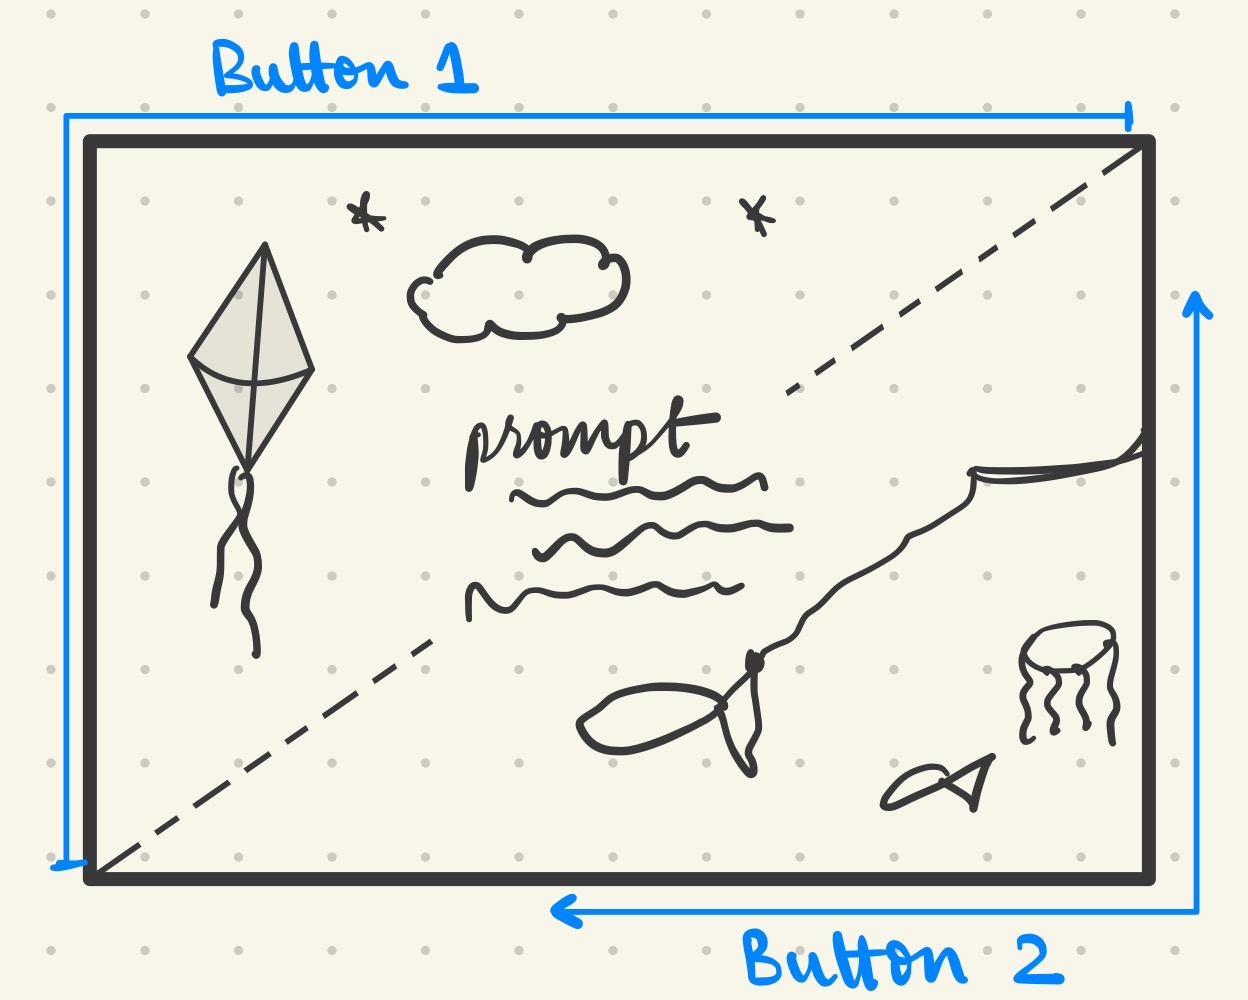 Button 1
prompt
Button 2